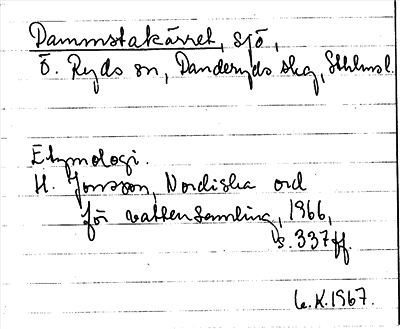 Dammstakärret, sjö,
Ö. Ryds sn, Danderyds skg, Sthlmsl.
Etymologi.
H. Jonsson, Nordiska ord
för vattensamling, 1966,
s. 337 ff.
G.K. 1967.